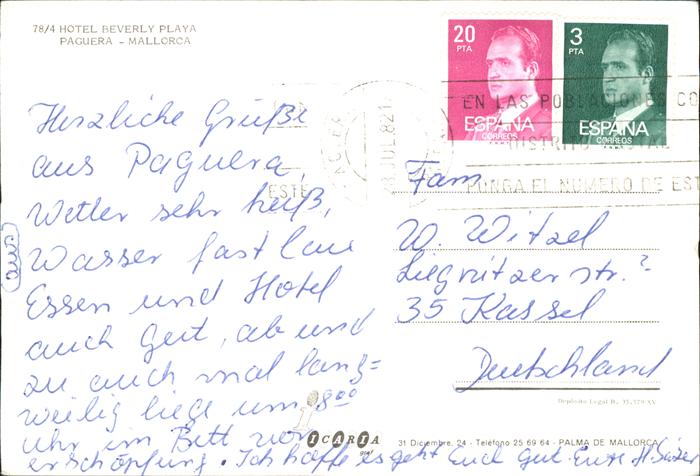 78/4 HOTEL BEVERLY PLAYA
PAGUERA - MALLORCA
20
PTA
ESPAÑA
CORREOS
3
PTA
ESPAÑA
CORREOS
EN LAS POBLACIONES CO
DISTRITO POSTAL
PONGA EL NUMERO DE EST
ESTE
JUL. 82
Herzliche Grüße
aus Paguera,
Wetter sehr heiß,
Wasser fast lau
Essen und Hotel
auch gut, ab und
zu auch mal lang=
weilig liege um 8⁰⁰
Uhr im Bett vor
erschöpfung. Ich hoffe es geht Euch gut. Eure
Fam.
W. Witzel
Liegnitzer str. ?
35 Kassel
Deutschland
Depósito Legal B. 35.379-XV
ICARIA
31 Diciembre, 24 - Teléfono 25 69 64 - PALMA DE MALLORCA